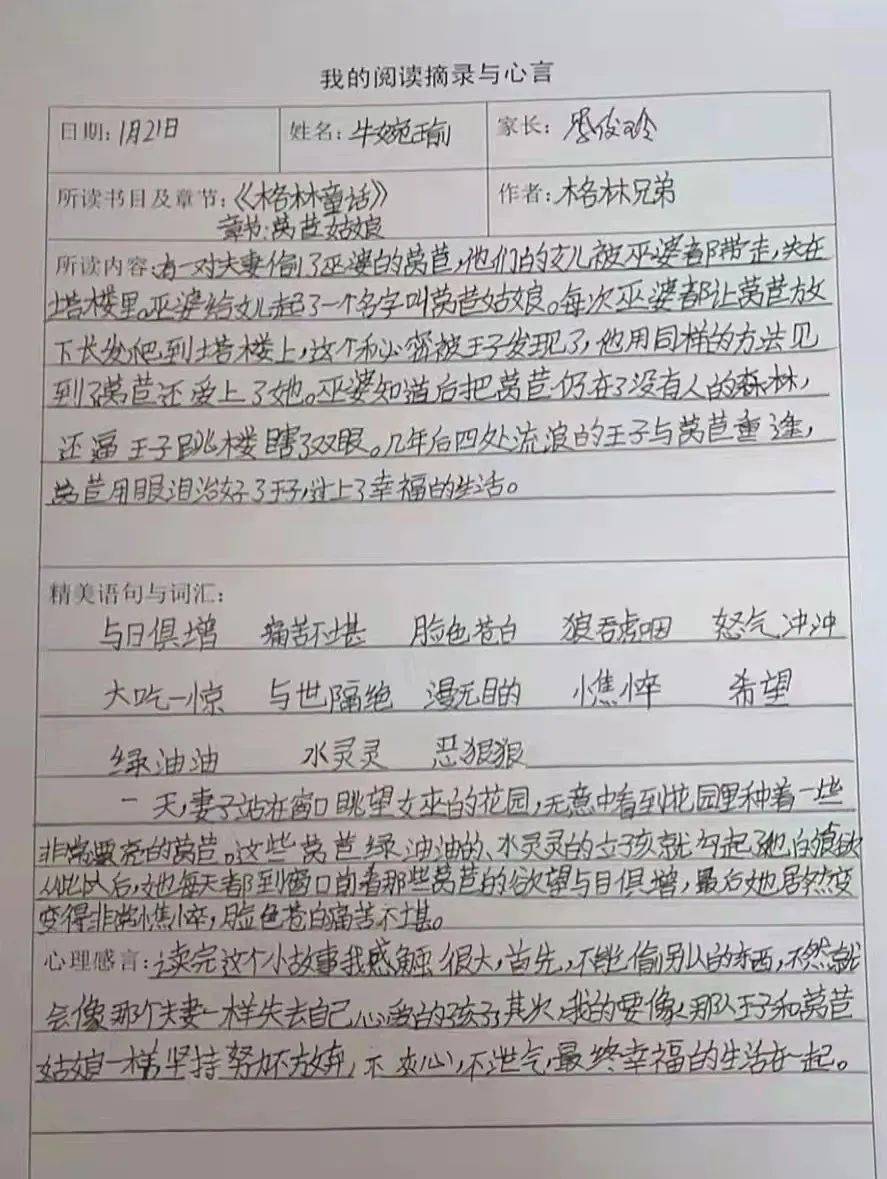 我的阅读摘录与心言
日期:1月21日 姓名:牛婉瑜 家长:俊玲
所读书目及章节:《格林童话》 作者:格林兄弟
章节:莴苣姑娘
所读内容:有一对夫妻偷了巫婆的莴苣,他们的女儿被巫婆都带走,关在
塔楼里。巫婆给女儿起了一个名字叫莴苣姑娘。每次巫婆都让莴苣放
下长发爬到塔楼上,这个秘密被王子发现了,他用同样的方法见
到了莴苣还爱上了她。巫婆知道后把莴苣仍在了没有人的森林,
还逼王子跳楼瞎了双眼。几年后四处流浪的王子与莴苣重逢,
莴苣用眼泪治好了王子,过上了幸福的生活。
精美语句与词汇:
与日俱增 痛苦不堪 脸色苍白 狼吞虎咽 怒气冲冲
大吃一惊 与世隔绝 漫无目的 憔悴 希望
绿油油 水灵灵 恶狠狠
一天,妻子站在窗口眺望女巫的花园,无意中看到花园里种着一些
非常漂亮的莴苣。这些莴苣绿油油的、水灵灵的立刻就勾起了她的食欲
从此以后,她每天都到窗口前看那些莴苣的欲望与日俱增,最后她居然变
变得非常憔悴,脸色苍白痛苦不堪。
心理感言:读完这个小故事我感触很大,首先,不能偷别人的东西,不然就
会像那个夫妻一样失去自己心爱的孩子,其次,我的要像那队王子和莴苣
姑娘一样坚持努力不放弃,不灰心,不泄气,最终幸福的生活在一起。